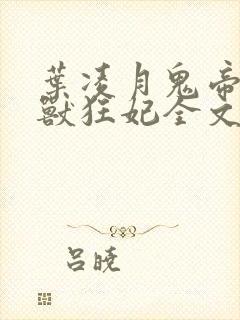 葉凌月鬼帝
獸狂妃全文
吕曉